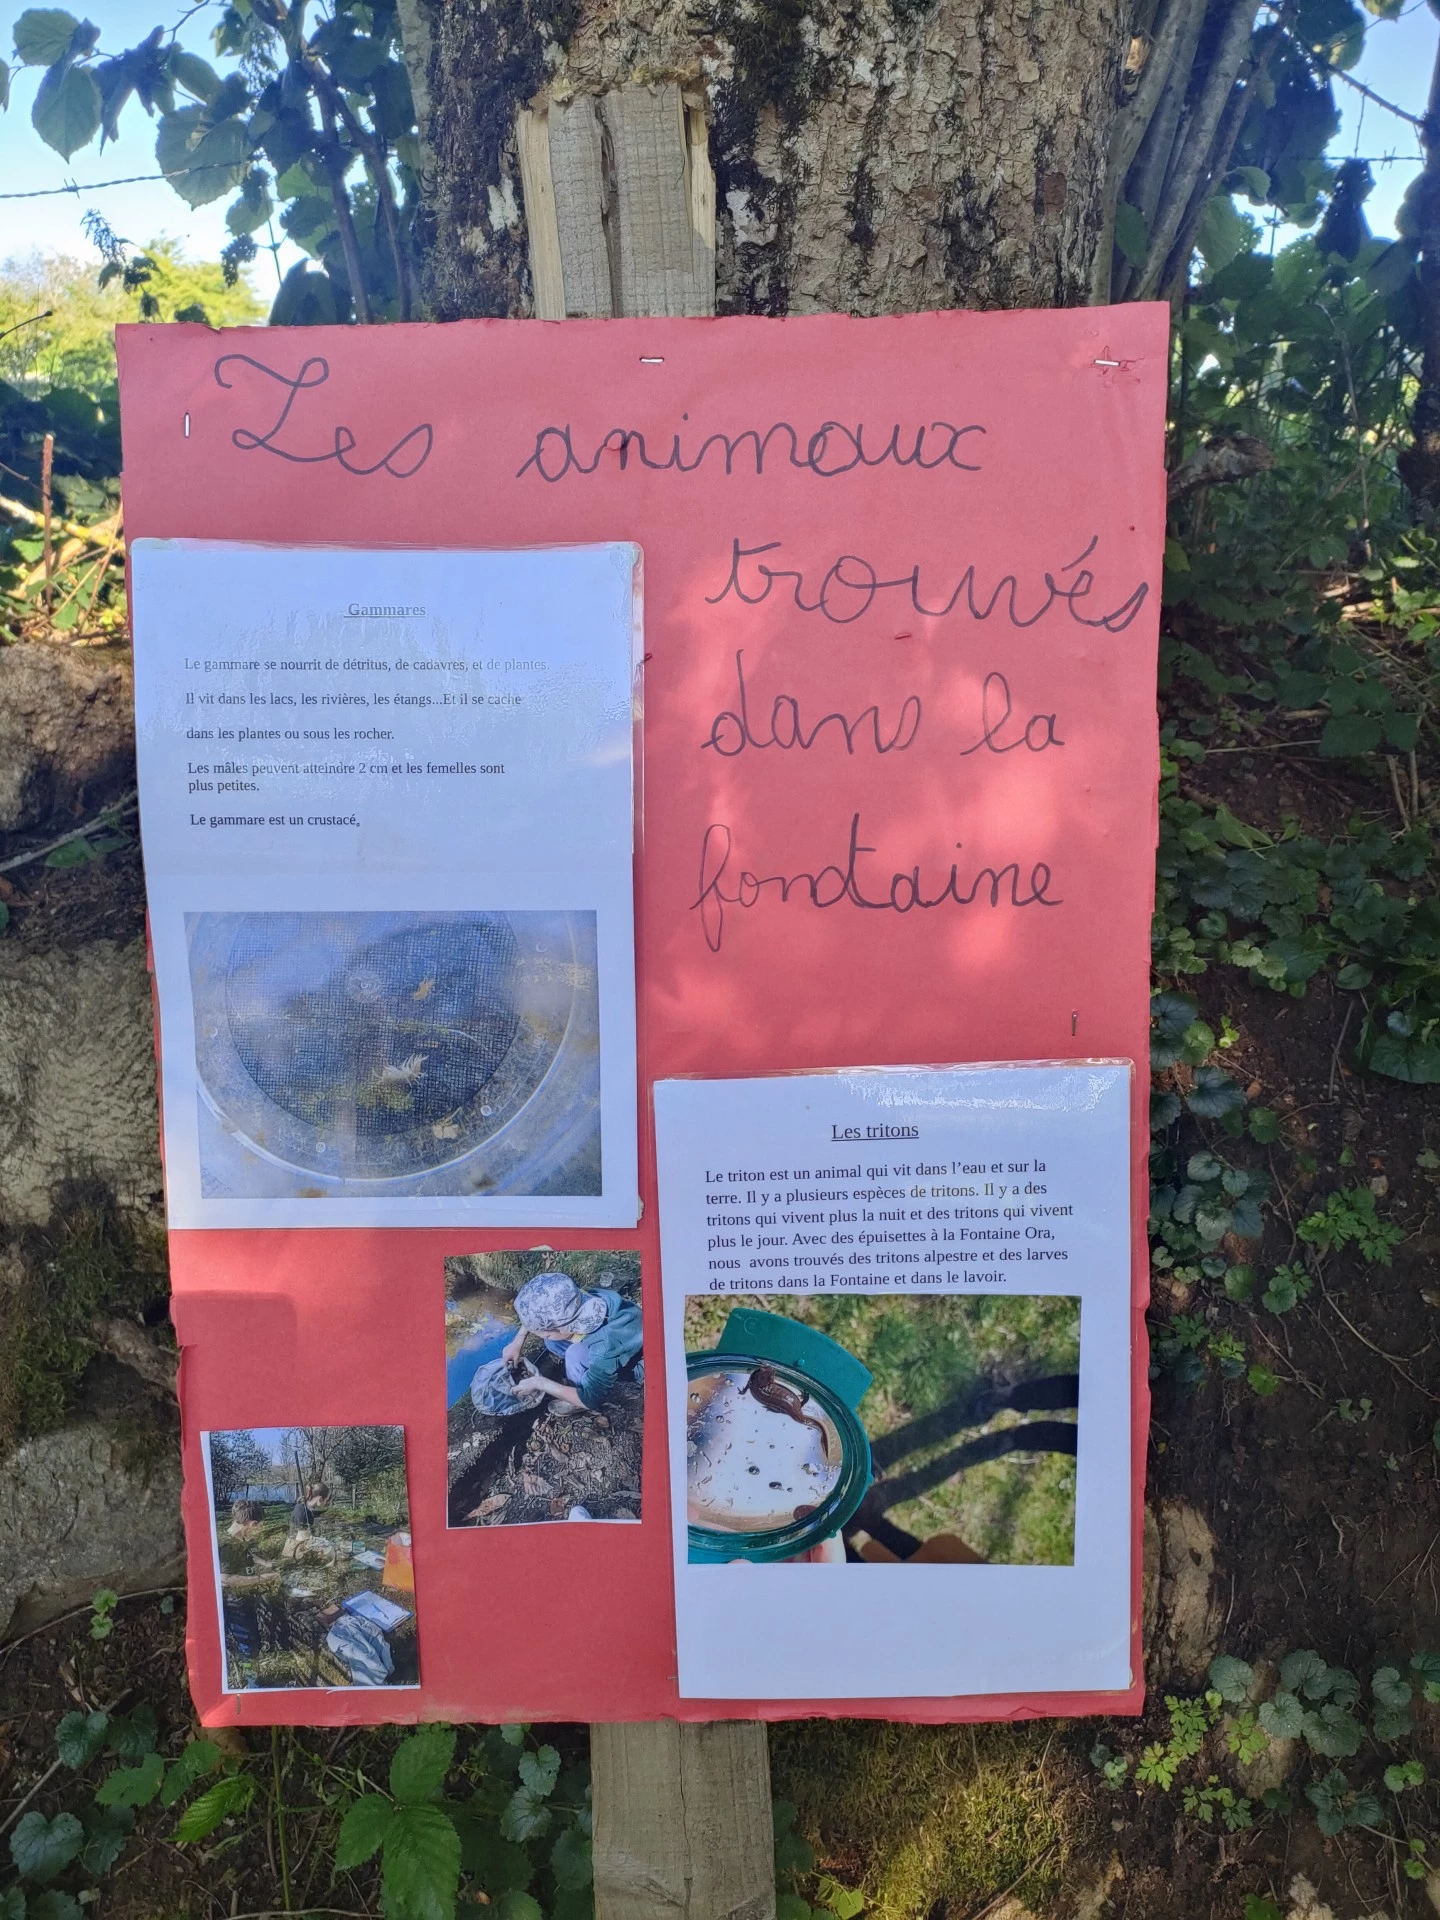 Les animaux
trouvés
dans la
fontaine
Gammares
Le gammare se nourrit de détritus, de cadavres, et de plantes.
Il vit dans les lacs, les rivières, les étangs...Et il se cache
dans les plantes ou sous les rocher.
Les mâles peuvent atteindre 2 cm et les femelles sont
plus petites.
Le gammare est un crustacé.
Les tritons
Le triton est un animal qui vit dans l’eau et sur la
terre. Il y a plusieurs espèces de tritons. Il y a des
tritons qui vivent plus la nuit et des tritons qui vivent
plus le jour. Avec des épuisettes à la Fontaine Ora,
nous avons trouvés des tritons alpestre et des larves
de tritons dans la Fontaine et dans le lavoir.